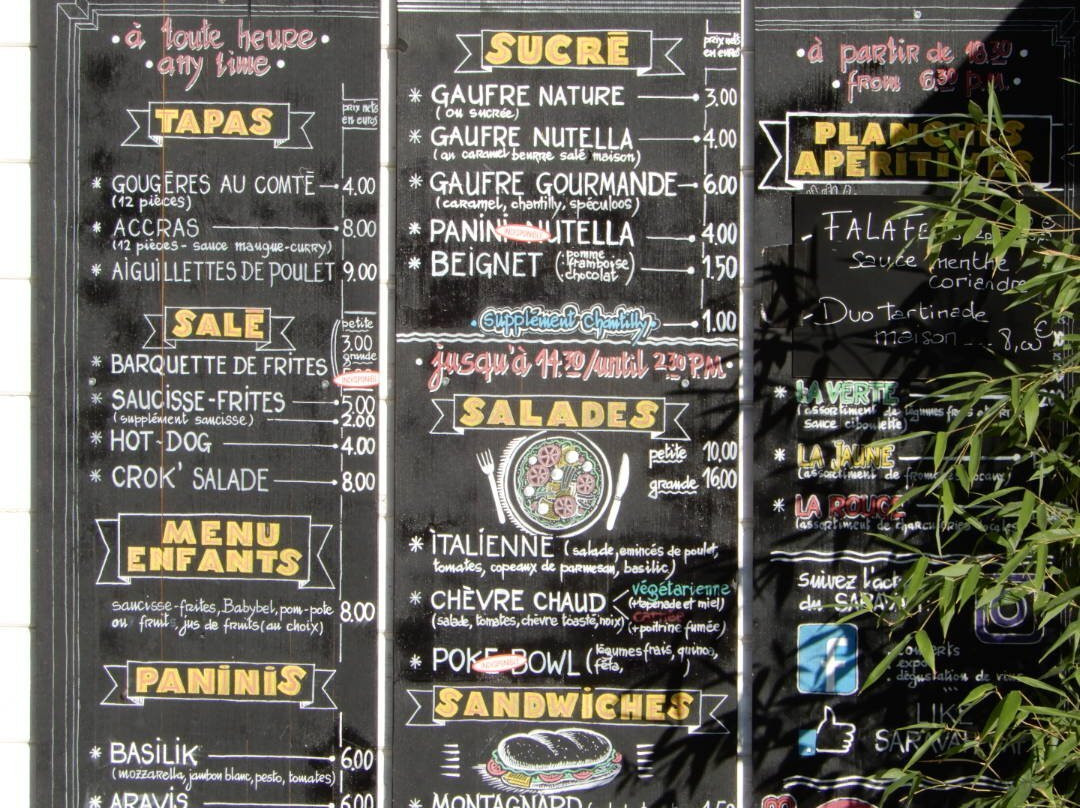 à toute heure
any time
TAPAS
prix nets
en euros
* GOUGÈRES AU COMTÉ 4.00
(12 pièces)
* ACCRAS 8.00
(12 pièces - sauce mangue-curry)
* AIGUILLETTES DE POULET 9.00
SALÉ
petite
3.00
grande
* BARQUETTE DE FRITES
INDISPONIBLE
* SAUCISSE-FRITES 5.00
(supplément saucisse) 2.00
* HOT-DOG 4.00
* CROK' SALADE 8.00
MENU
ENFANTS
saucisse-frites, Babybel, pom-pote
ou fruit, jus de fruits (au choix) 8.00
PANINIS
* BASILIK 6.00
(mozzarella, jambon blanc, pesto, tomates)
* ARAVIS 6.00
SUCRÉ
prix nets
en euros
* GAUFRE NATURE 3.00
(ou sucrée)
* GAUFRE NUTELLA 4.00
(ou caramel beurre salé maison)
* GAUFRE GOURMANDE 6.00
(caramel, chantilly, spéculoos)
* PANINI NUTELLA 4.00
INDISPONIBLE
* BEIGNET (pomme framboise chocolat) 1.50
supplément chantilly 1.00
jusqu'à 14.30/until 2.30 P.M.
SALADES
petite 10.00
grande 16.00
* ITALIENNE (salade, émincés de poulet,
tomates, copeaux de parmesan, basilic)
* CHÈVRE CHAUD végétarienne
(+tapenade et miel)
(salade, tomates, chèvre toasté, noix)
(+poitrine fumée)
* POKE BOWL (légumes frais, quinoa,
fêta,
INDISPONIBLE
SANDWICHES
* MONTAGNARD
à partir de 18.30
from 6.30 P.M.
PLANCHES
APÉRITIVES
- FALAFE
sauce menthe
coriandre
- Duo tartinade
maison 8,00€
* LA VERTE
(assortiment de légumes frais
sauce ciboulette)
* LA JAUNE
(assortiment de fromages locaux)
* LA ROUGE
(assortiment de charcuteries locales)
suivez l'act
du SARAV
f
concerts
expo
dégustation de vins
LIKE
SARAVAH